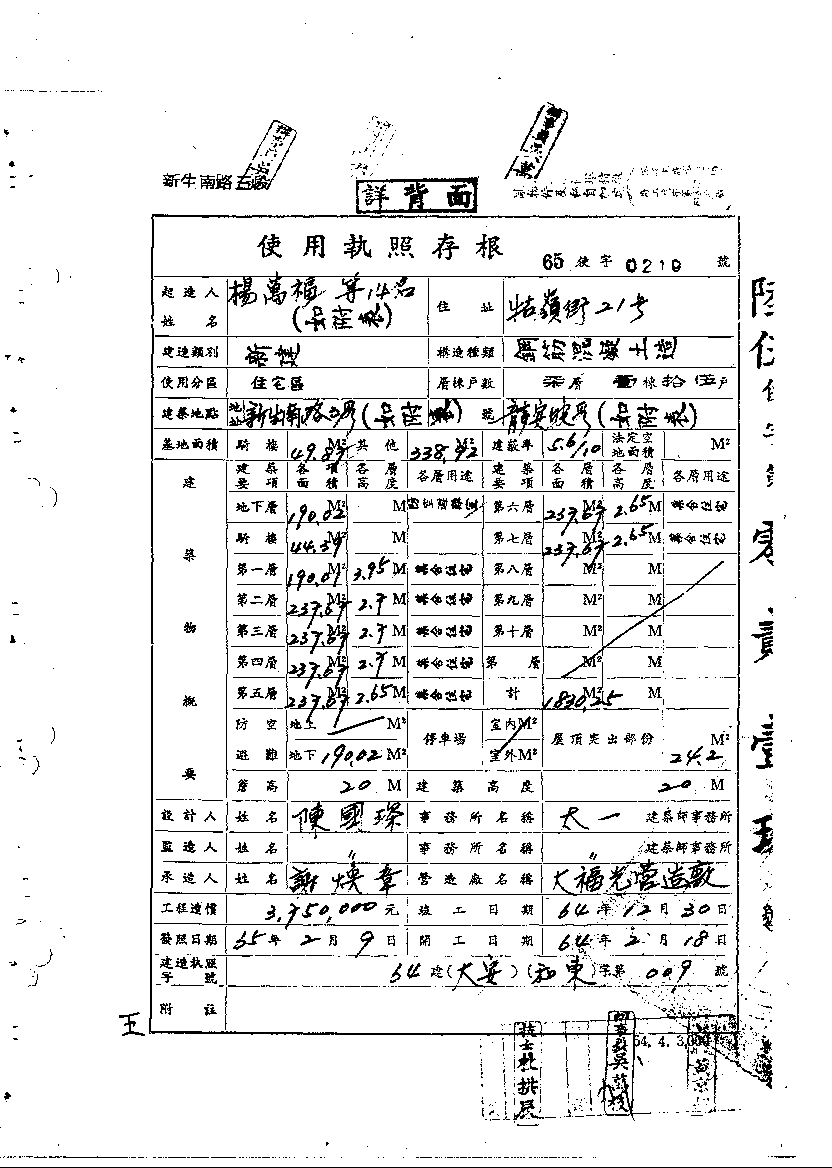 新生南路五段
詳背面
使用執照存根
65 使字 0210 號
起造人姓名 楊萬福 等14名 住址 牯嶺街21号
建造類別 新建 構造種類 鋼筋混凝土造
使用分區 住宅區 層棟戶數 柒層 壹棟拾伍戶
建築地點 地址 號
基地面積 騎樓 49.87 M² 其他 338.92 M² 建蔽率 5.6/10 法定空地面積 M²
建築物概要
建築要項 各項面積 各層高度 各層用途 建築要項 各層面積 各層高度 各層用途
地下層 190.02 M² M 第六層 237.67 M² 2.65 M 集合住宅
騎樓 44.59 M² M 第七層 237.67 M² 2.65 M 集合住宅
第一層 190.07 M² 3.95 M 集合住宅 第八層 M² M
第二層 237.67 M² 2.7 M 集合住宅 第九層 M² M
第三層 237.67 M² 2.7 M 集合住宅 第十層 M² M
第四層 237.67 M² 2.7 M 集合住宅 第 層 M² M
第五層 237.67 M² 2.65 M 集合住宅 計 1830.25 M² M
防空避難 地上 M² 停車場 室內 M² 屋頂突出部份 24.2 M²
地下 190.02 M² 室外 M²
簷高 20 M 建築高度 20 M
設計人 姓名 陳國琛 事務所名稱 太一 建築師事務所
監造人 姓名 〃 事務所名稱 〃 建築師事務所
承造人 姓名 謝煥章 營造廠名稱 大福光營造廠
工程造價 3,750,000 元 竣工日期 64年12月30日
發照日期 65年2月9日 開工日期 64年2月18日
建造執照字號 64建(大安)(和東)字第009號
附註
五
64. 4. 3,000